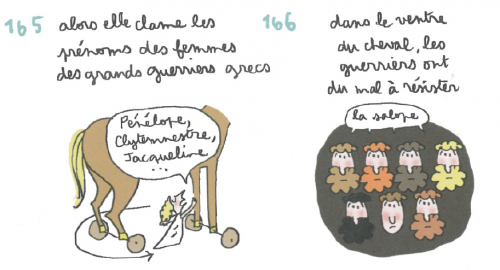 165
alors elle clame les
prénoms des femmes
des grands guerriers grecs
Pénélope,
Clytemnestre,
Jacqueline
...
166
dans le ventre
du cheval, les
guerriers ont
du mal à résister
la salope